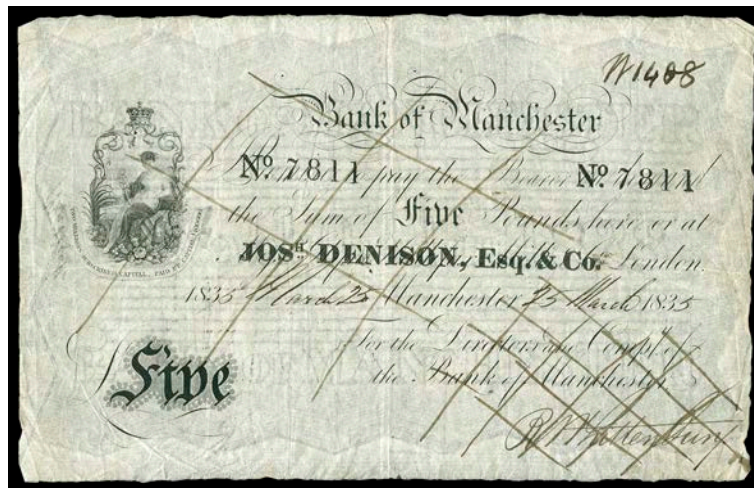 W1408
Bank of Manchester
Nº 7811 pay the Bearer Nº 7811
the Sum of Five Pounds here or at
JOSH DENISON, Esq. & Co. London
1835 March 25 Manchester 25 March 1835
For the Directors and Compy. of
the Bank of Manchester
Five